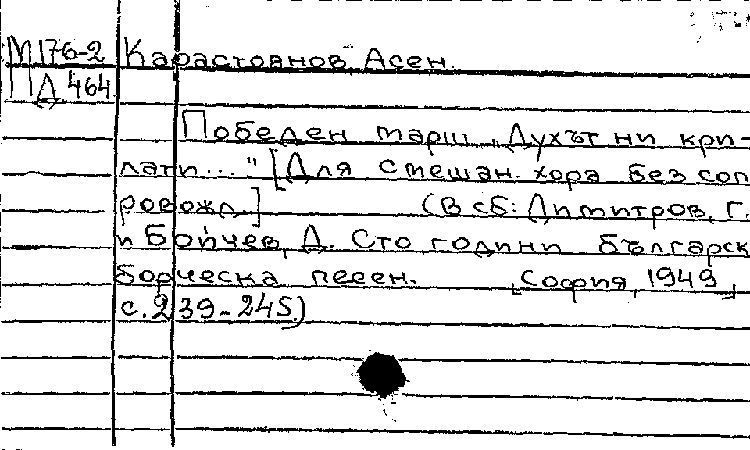 М176-2 Карастоянов, Асен.
Д 464
Победен марш „Духът ни кри-
лати..." [Для смешан. хора без соп
ровожд.] (В сб: Димитров, Г.
и Бойчев, Д. Сто години българск
борческа песен. [София, 1949],
с. 239-245)